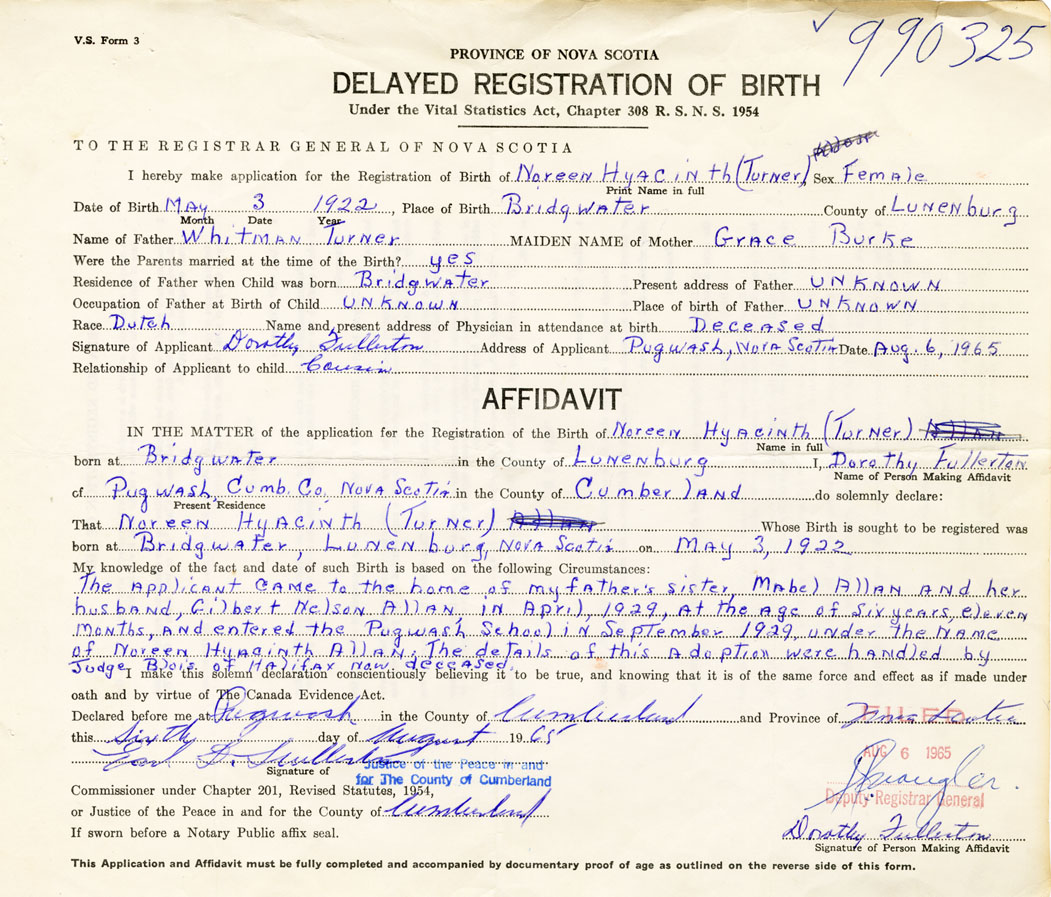 V.S. Form 3
990325
PROVINCE OF NOVA SCOTIA
DELAYED REGISTRATION OF BIRTH
Under the Vital Statistics Act, Chapter 308 R. S. N. S. 1954
TO THE REGISTRAR GENERAL OF NOVA SCOTIA
I hereby make application for the Registration of Birth of Noreen Hyacinth (Turner) Sex Female
Print Name in full
Date of Birth May 3 1922, Place of Birth Bridgwater County of Lunenburg
Month Date Year
Name of Father Whitman Turner MAIDEN NAME of Mother Grace Burke
Were the Parents married at the time of the Birth? yes
Residence of Father when Child was born Bridgwater Present address of Father UNKNOWN
Occupation of Father at Birth of Child UNKNOWN Place of birth of Father UNKNOWN
Race Dutch Name and present address of Physician in attendance at birth Deceased
Signature of Applicant Dorothy Fullerton Address of Applicant Pugwash, Nova Scotia Date Aug. 6, 1965
Relationship of Applicant to child Cousin
AFFIDAVIT
IN THE MATTER of the application for the Registration of the Birth of Noreen Hyacinth (Turner) Allan
Name in full
born at Bridgwater in the County of Lunenburg I, Dorothy Fullerton
Name of Person Making Affidavit
of Pugwash, Cumb. Co, Nova Scotia in the County of Cumberland do solemnly declare:
Present Residence
That Noreen Hyacinth (Turner) Allan Whose Birth is sought to be registered was
born at Bridgwater, Lunenburg, Nova Scotia on May 3, 1922
My knowledge of the fact and date of such Birth is based on the following Circumstances:
The applicant came to the home of my father's sister, Mabel Allan and her
husband, Gilbert Nelson Allan, in April, 1929, at the age of six years, eleven
months, and entered the Pugwash School in September 1929, under the name
of Noreen Hyacinth Allan. The details of this adoption were handled by
Judge Blois of Halifax now deceased.
I make this solemn declaration conscientiously believing it to be true, and knowing that it is of the same force and effect as if made under
oath and by virtue of The Canada Evidence Act.
Declared before me at Pugwash in the County of Cumberland and Province of Nova Scotia
FILED
this Sixth day of August 1965
AUG 6 1965
Earl D. Fullerton
Justice of the Peace in and
for The County of Cumberland
Signature of
Commissioner under Chapter 201, Revised Statutes, 1954,
Deputy Registrar General
or Justice of the Peace in and for the County of Cumberland
If sworn before a Notary Public affix seal.
Dorothy Fullerton
Signature of Person Making Affidavit
This Application and Affidavit must be fully completed and accompanied by documentary proof of age as outlined on the reverse side of this form.